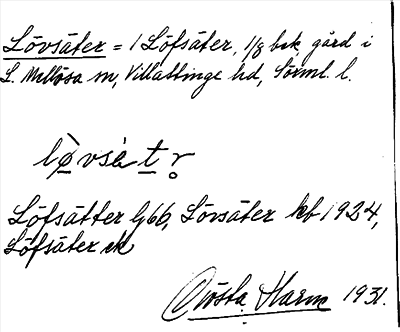 Lövsäter = 1 Löfsäter, 1/8 bsk. gård i
L. Mellösa sn, Villåttinge hd, Sörml. l.
lø̀vsàt̠r̥
Löfsätter G66, Lövsäter kb 1924,
Löfsäter ek
Gösta Harm 1931.